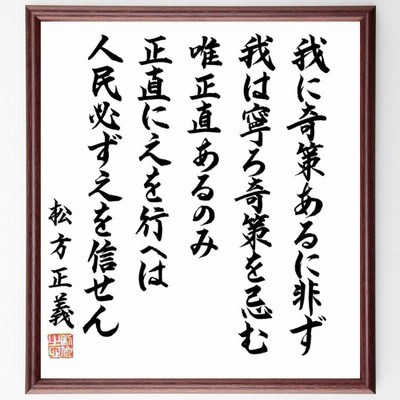 我に奇策あるに非ず
我は寧ろ奇策を忌む
唯正直あるのみ
正直にえを行へは
人民必ずえを信せん
松方正義